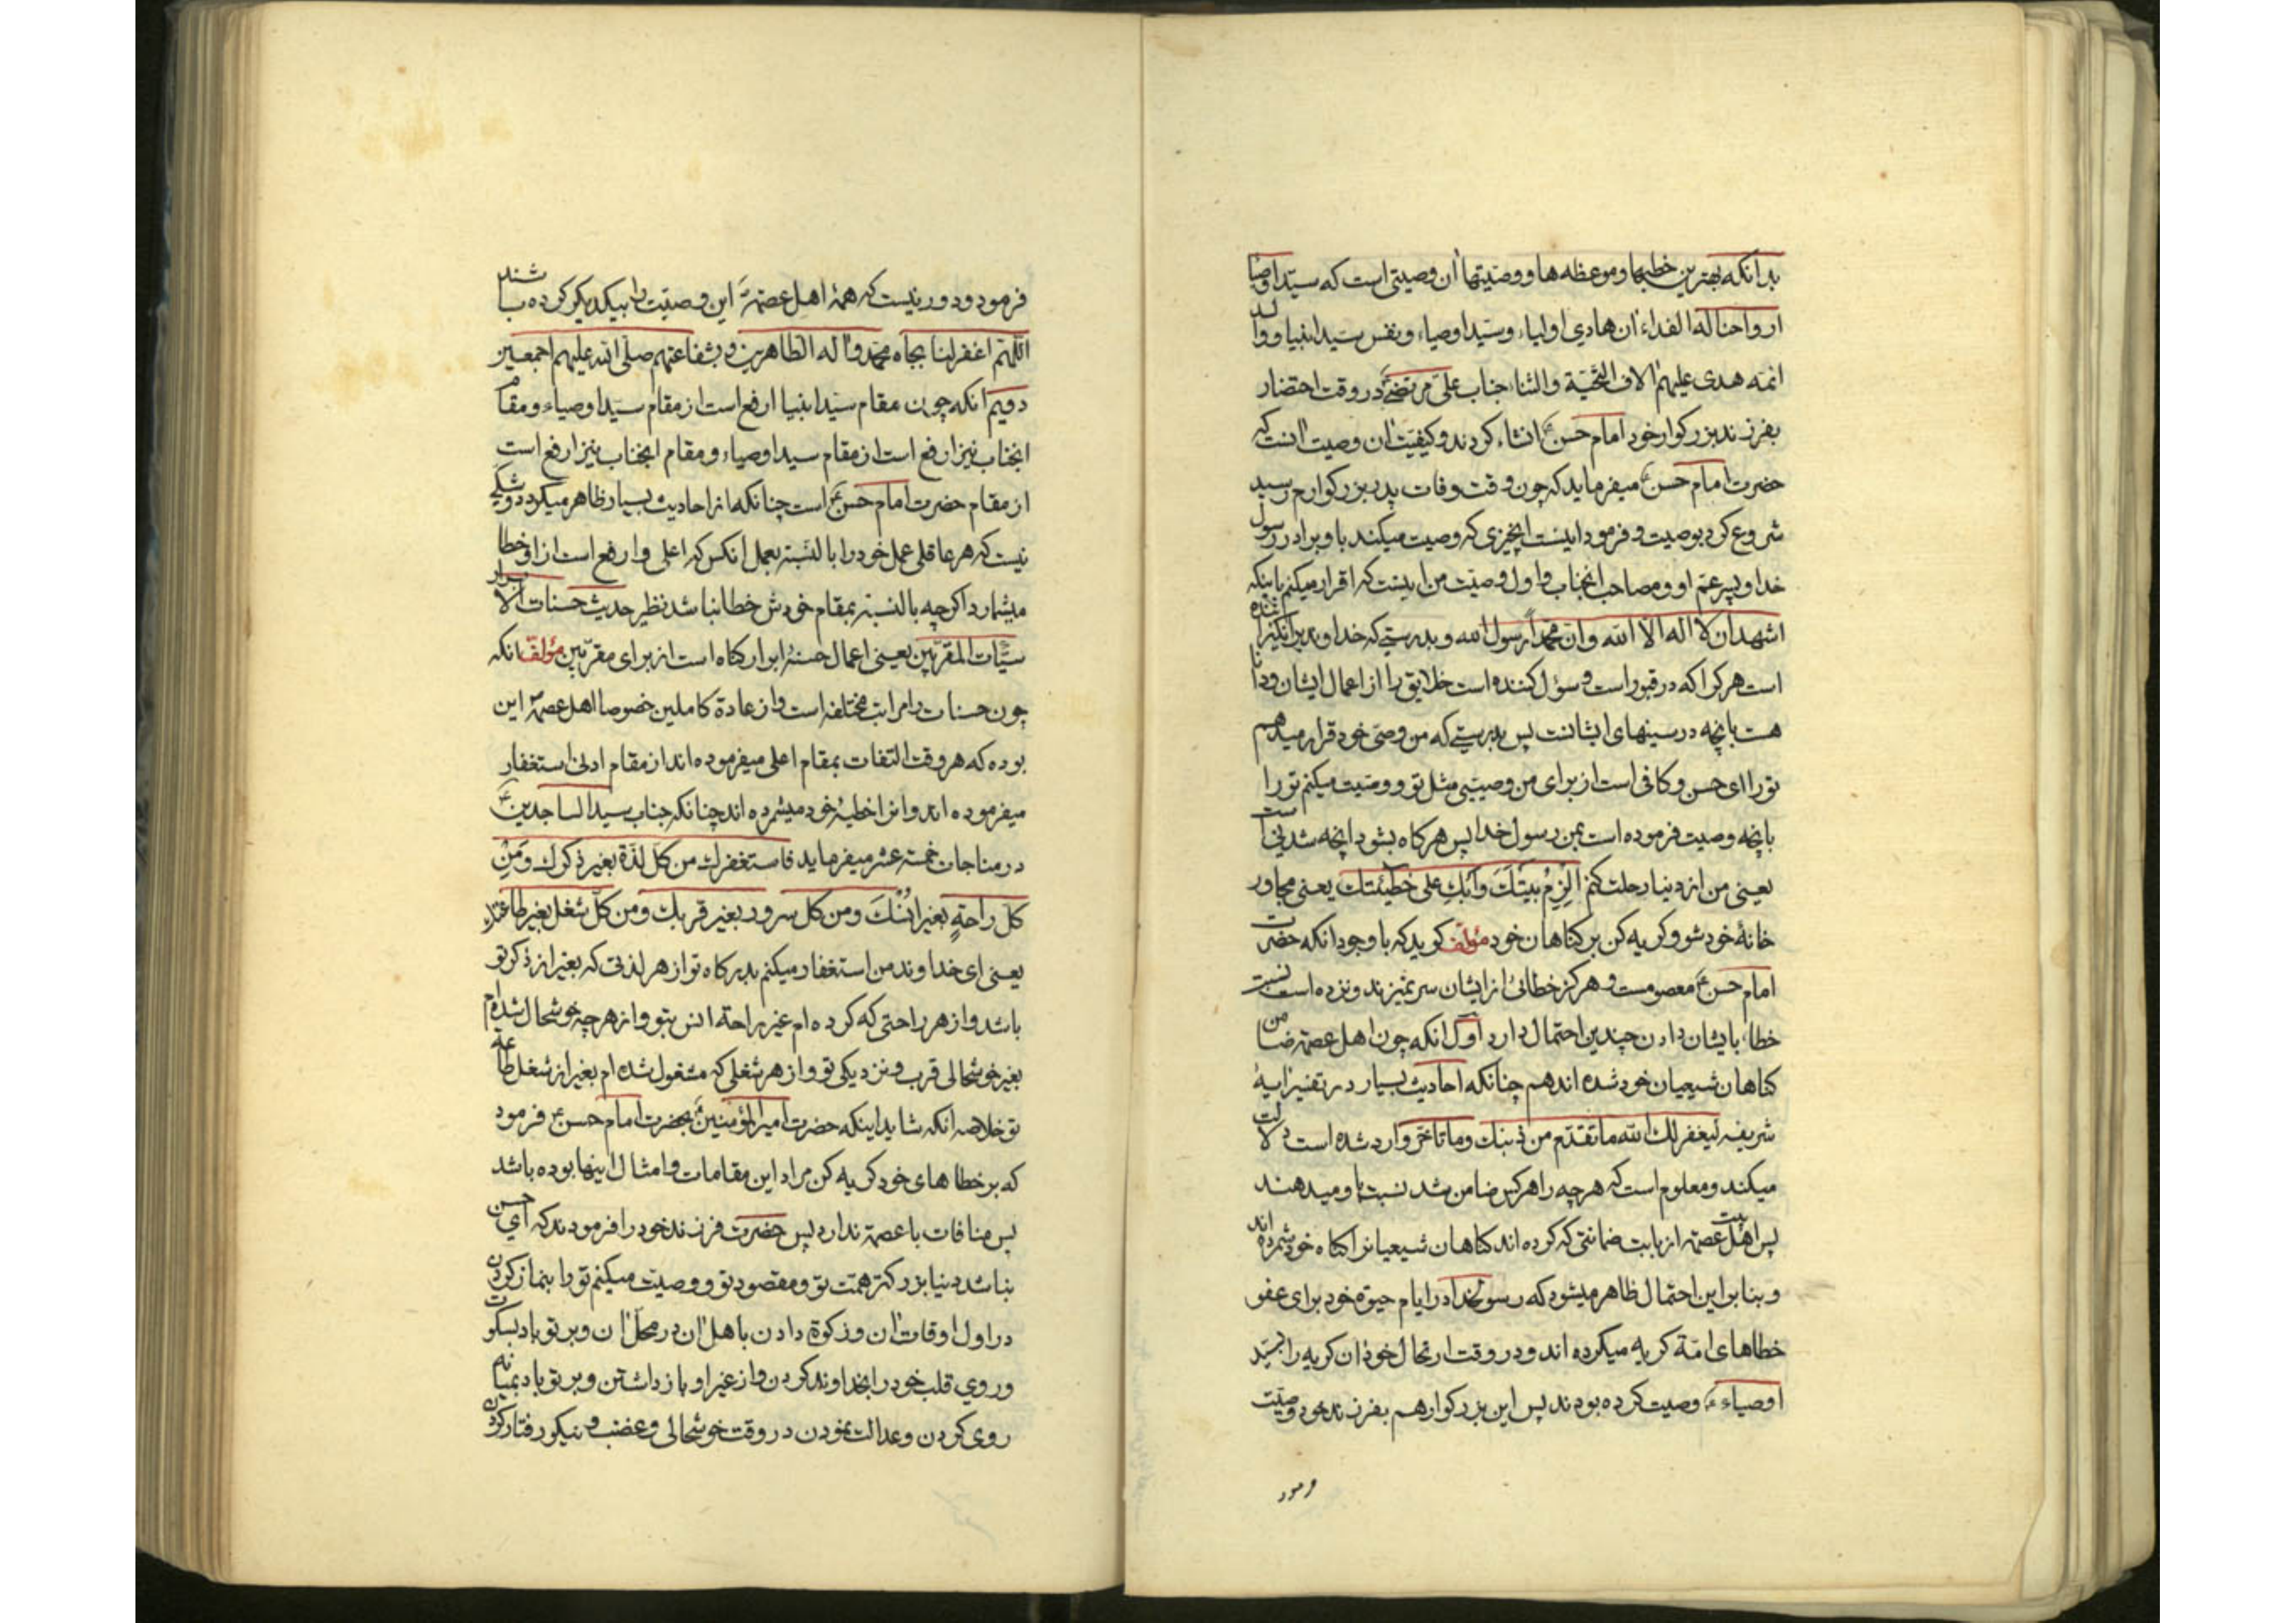 بدانکه بهترین خطبها و موعظه ها و وصیتها آن وصیتی است که سید اوصیا
ارواحنا له الفداء آن هادی اولیاء و سید اوصیاء و نفس سید انبیا و والد
ائمه هدی علیهم آلاف التحیة والثناء جناب علی مرتضی در وقت احتضار
بفرزند بزرکوار خود امام حسن ع انشاء کردند و کیفیت آن وصیت آنست که
حضرت امام حسن ع میفرماید که چون وقت وفات پدر بزرکوارم رسید
شروع کرد بوصیت و فرمود اینست آنچیزی که وصیت میکند باو برادر رسول
خدا و پسر عم او و مصاحب آنجناب و اول وصیت من اینست که اقرار میکنم باینکه
اشهد ان لا اله الا الله و ان محمدا رسول الله و بدرستی که خداوند برانکیزانده
است هر کرا که در قبور است و سؤل کننده است خلایق را از اعمال ایشان و دانا
هست بآنچه در سینهای ایشانست پس بدرستی که من وصی خود قرار میدهم
تو را ای حسن و کافی است از برای من وصیتی مثل تو و وصیت میکنم تو را
بآنچه وصیت فرموده است بمن رسول خدا پس هرکاه بشود آنچه شدنی است
یعنی من از دنیا رحلت کنم الزم بیتک وابک علی خطیئتک یعنی مجاور
خانهٔ خود شو و کریه کن بر کناهان خود مؤلف کوید که با وجود آنکه حضرت
امام حسن ع معصومست و هرکز خطائی از ایشان سر نمیزند و نزده است نسبت
خطا بایشان دادن چندین احتمال دارد اول آنکه چون اهل عصمة ضامن
کناهان شیعیان خود شده اند هم چنانکه احادیث بسیار در تفسیر آیهٔ
شریفه لیغفر لک الله ما تقدم من ذنبک وما تاخر وارد شده است دلالت
میکند و معلوم است که هر چه را هر کس ضامن شد نسبت باو میدهند
پس اهل بیت عصمة از بابت ضمانتی که کرده اند کناهان شیعیانرا کناه خود شمرده اند
و بنا بر این احتمال ظاهر میشود که رسولخدا در ایام حیوة خود برای عفو
خطاهای امة کریه میکرده اند و در وقت ارتحال خود آن کریه را بسید
اوصیاء ع وصیت کرده بودند پس این بزرکوار هم بفرزند خود وصیت
فرمود
فرمود و دور نیست که همهٔ اهل عصمة این وصیت را بیکدیکر کرده باشند
اللهم اغفر لنا بجاه محمد وآله الطاهرین وبشفاعتهم صلی الله علیهم اجمعین
دویم آنکه چون مقام سید انبیا ارفع است از مقام سید اوصیاء و مقام
آنجناب نیز ارفع است از مقام سید اوصیاء و مقام آنجناب نیز ارفع است
از مقام حضرت امام حسن ع است چنانکه از احادیث بسیار ظاهر میکردد و شکی
نیست که هر عاقلی عمل خود را بالنسبه بعمل آنکس که اعلی و ارفع است از او خطا
میشمارد اکر چه بالنسبه بمقام خودش خطا نباشد نظیر حدیث حسنات الابرار
سیئات المقربین یعنی اعمال حسنهٔ ابرار کناه است از برای مقربین مؤلف آنکه
چون حسنات را مراتب مختلفه است و از عادة کاملین خصوصا اهل عصمة این
بوده که هر وقت التفات بمقام اعلی میفرموده اند از مقام ادنی استغفار
میفرموده اند و آنرا خطیهٔ خود میشمرده اند چنانکه جناب سید الساجدین ع
در مناجات خمسة عشر میفرماید فاستغفرک من کل لذة بغیر ذکرک ومن
کل راحة بغیر انسک ومن کل سرور بغیر قربک ومن کل شغل بغیر طاعتک
یعنی ای خداوند من استغفار میکنم بدرکاه تو از هر لذتی که بغیر از ذکر تو
باشد و از هر راحتی که کرده ام غیر راحة انس بتو و از هر چه خوشحال شده ام
بغیر خوشحالی قرب و نزدیکی تو و از هر شغلی که مشغول شده ام بغیر از شغل طاعة
تو خلاصه آنکه شاید اینکه حضرت امیرالمؤمنین ع بحضرت امام حسن ع فرمود
که بر خطاهای خود کریه کن مراد این مقامات و امثال اینها بوده باشد
پس منافات با عصمة ندارد پس حضرت فرزند خود را فرمودند که ای حسن
نباشد دنیا بزرکتر همت تو و مقصود تو و وصیت میکنم تو را بنماز کردن
در اول اوقات آن و زکوة دادن باهل آن در محل آن و بر تو باد بسکوت
و روی قلب خود را بخداوند کردن و از غیر او باز داشتن و بر تو باد بمیانه
روی کردن و عدالت نمودن در وقت خوشحالی و غضب و نیکو رفتار کردن